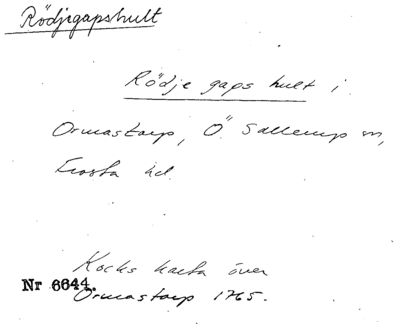 Rödjegapshult
Rödje gaps hult i
Ormastorp, Ö. Sallerup sn,
Frosta hd.
Kocks karta över
Nr 6644.
Ormastorp 1765.